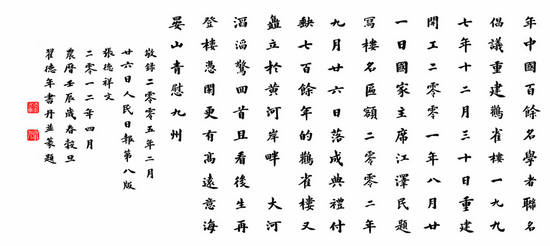 年中國百餘名學者聯名
倡議重建鸛雀樓一九九
七年十二月三十日重建
開工二零零一年八月廿
一日國家主席江澤民題
寫樓名匾額二零零二年
九月廿六日落成典禮付
缺七百餘年的鸛雀樓又
矗立於黃河岸畔 大河
滔滔驚回首且看後生再
登樓憑闌更有高遠意海
晏山青慰九州
敬錄二零零五年二月
廿六日人民日報第八版
張德祥文
二零一二年四月
農曆壬辰歲春穀旦
翟德年書丹並篆題